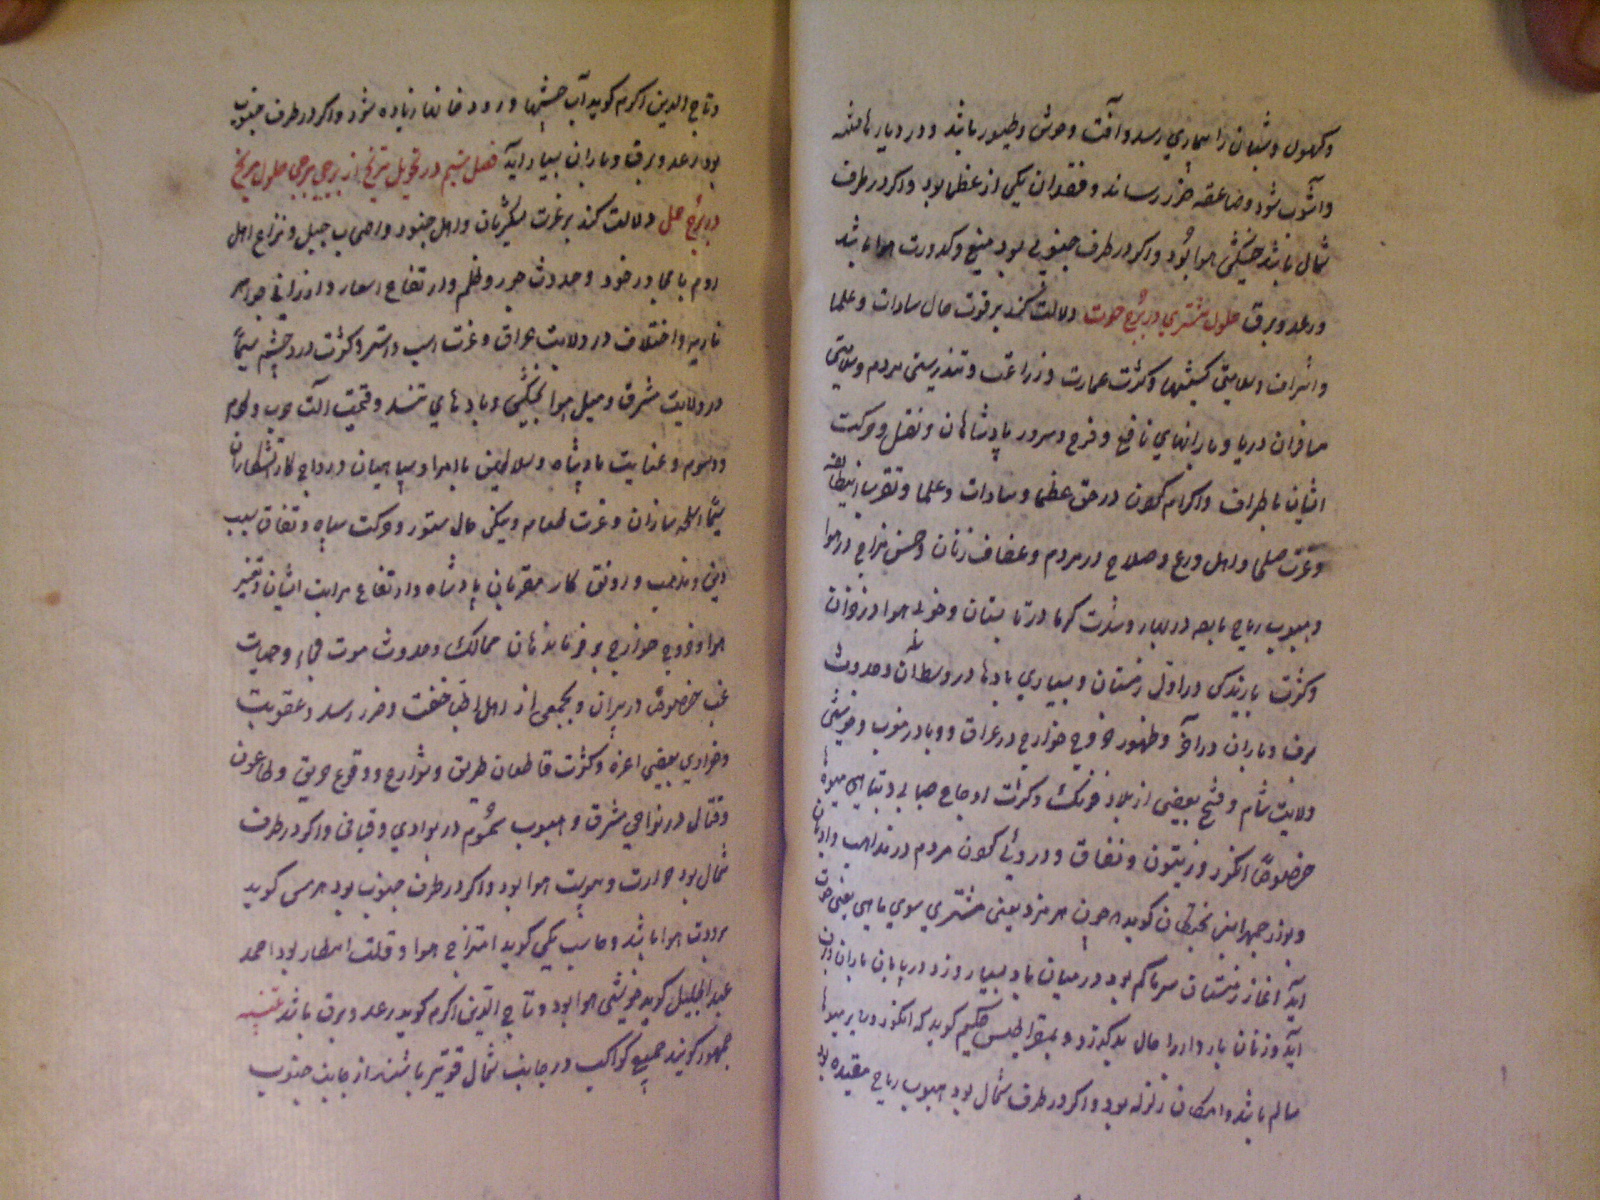 وکهول و شبان را بیماری رسد و آفت وحوش و طیور باشد و در دیار
و آشوب شود و صاعقه ضرر رساند و فقدان یکی از عظما بود و اکر در طرف
شمال باشد خشکی هوا بود و اکر در طرف جنوبی بود میغ و کدورت هوا باشد
و رعد و برق حلول مشتری در برج حوت دلالت کند بر قوت حال سادات و علما
و اشراف و سلامتی کشتیها و کثرت عمارت و زراعت و تندرستی مردم و سلامتی
مسافران دریا و بارانهای نافع و فرح و سرور پادشاهان و نقل و حرکت
ایشان باطراف و اکرام کردن در حق عظما و سادات و علما و تقرب
و عزت صلحا و اهل ورع و صلاح در مردم و عفاف زنان و حسن مزاج در هوا
و هبوب ریاح نافعه در بهار و شدت کرما در تابستان و خوبی هوا در خزان
و کثرت بارندکی در اول زمستان و بسیاری بادها در وسط آن و حدوث
برف و باران در آخر و ظهور و خروج خوارج در عراق و وبا در جنوب و خوشی
ولایت شام و فتح بعضی از بلاد فرنک و کثرت اوجاع و تباهی میوها
خصوصا انکور و زیتون و نفاق و دروئی کردن مردم در مذاهب و ادیان
و بوذرجمهر ابن بختکان کوید چون هرمزد یعنی مشتری سوی ماهی یعنی حوت
آید آغاز زمستان سرما کم بود در میان باد بسیار وزد در پایان باران
آید و زنان باردار را حال بد کذرد و بقراطیس حکیم کوید که انکور و سایر میوها
سالم باشد و امکان زلزله بود و اکر در طرف شمال بود هبوب ریاح مفیده بود
و تاج الدین اکرم کوید آب چشمها و رودخانها زیاده شود و اکر در طرف جنوب
بود رعد و برق و باران بسیار آید فصل ششم در تحویل مریخ از برجی ببرجی حلول مریخ
در برج حمل دلالت کند بر عزت لشکریان و اهل جنود و اصحاب جبل و نزاع اهل
روم با مجاور خود و حدوث جور و ظلم و ارتفاع اسعار و ارزانی جواهر
ناریه و اختلاف در ولایت عراق و عزت اسب و استر و کثرت درد چشم سیما
در ولایت مشرق و میل هوا بخشکی و بادهای تند و قیمت آلت حرب و لحوم
و دسوم و عنایت پادشاه و سلاطین با امرا و سپاهیان و رواج کار آتشکاران
سیما اسلحه سازان و عزت طعام و نیکی حال ستور و حرکت سپاه و نفاق بسبب
دین و مذهب و رونق کار مقربان پادشاه و ارتفاع مراتب ایشان و تغییر
هوا و خروج خوارج بر فرماندهان ممالک و حدوث موت فجاء و حمیات
غب خصوصا در پیران و بجمعی از اهل خفت و ضرر رسد و عقوبت
و خواری بعضی اعزه و کثرت قاطعان طریق و شوارع و وقوع حریق و طاعون
و قتال در نواحی مشرق و هبوب سموم در بوادی و فیافی و اکر در طرف
شمال بود حرارت و یبوست هوا بود و اکر در طرف جنوب بود هرمس کوید
برودت هوا باشد و حاسب یکی کوید امتزاج هوا و قلت امطار بود احمد
عبدالجلیل کوید خوشی هوا بود و تاج الدین اکرم کوید رعد و برق باشد تنبیه
جمهور کویند جمیع کواکب در جانب شمال قویتر باشند از جانب جنوب